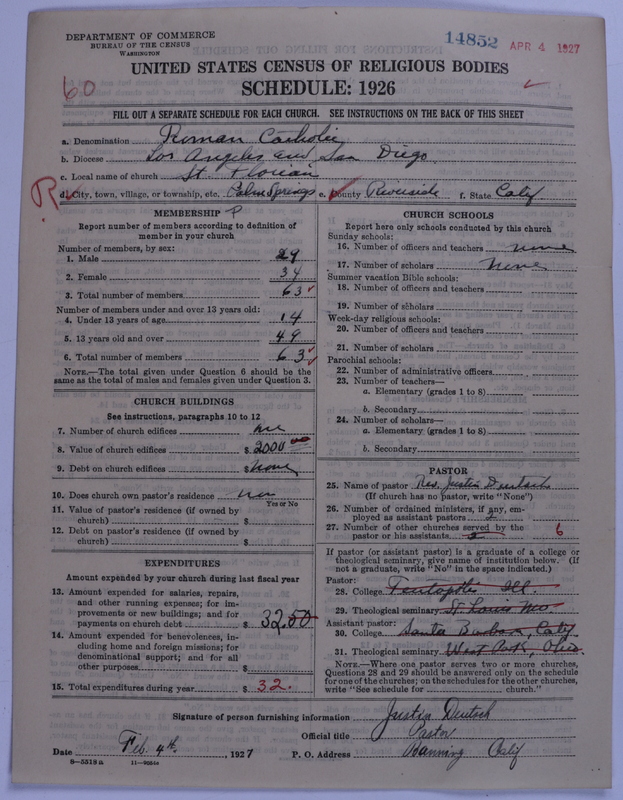 DEPARTMENT OF COMMERCE
BUREAU OF THE CENSUS
WASHINGTON
14852 APR 4 1927
UNITED STATES CENSUS OF RELIGIOUS BODIES
60 SCHEDULE: 1926
FILL OUT A SEPARATE SCHEDULE FOR EACH CHURCH. SEE INSTRUCTIONS ON THE BACK OF THIS SHEET
a. Denomination Roman Catholic
b. Diocese Los Angeles and San Diego
c. Local name of church St. Florian
R d. City, town, village, or township, etc. Palm Springs e. County Riverside f. State Calif
MEMBERSHIP P
Report number of members according to definition of member in your church
Number of members, by sex:
1. Male 29
2. Female 34
3. Total number of members 63
Number of members under and over 13 years old:
4. Under 13 years of age 14
5. 13 years old and over 49
6. Total number of members 63
NOTE.—The total given under Question 6 should be
same as the total of males and females given under Question 3.
CHURCH BUILDINGS
See instructions, paragraphs 10 to 12
7. Number of church edifices one
8. Value of church edifices $ 2000 00
9. Debt on church edifices $ None
10. Does church own pastor's residence no
Yes or No
11. Value of pastor's residence (if owned by
church) $
12. Debt on pastor's residence (if owned by
church) $
EXPENDITURES
Amount expended by your church during last fiscal year
13. Amount expended for salaries, repairs,
and other running expenses; for im-
provements or new buildings; and for
payments on church debt $ 32.50
14. Amount expended for benevolences, in-
cluding home and foreign missions; for
denominational support; and for all
other purposes $
15. Total expenditures during year $ 32.
CHURCH SCHOOLS
Report here only schools conducted by this church
Sunday schools:
16. Number of officers and teachers none
17. Number of scholars none
Summer vacation Bible schools:
18. Number of officers and teachers
19. Number of scholars
Week-day religious schools:
20. Number of officers and teachers
21. Number of scholars
Parochial schools:
22. Number of administrative officers
23. Number of teachers—
a. Elementary (grades 1 to 8)
b. Secondary
24. Number of scholars—
a. Elementary (grades 1 to 8)
b. Secondary
PASTOR
25. Name of pastor Rev. Justin Deutsch
(If church has no pastor, write "None")
26. Number of ordained ministers, if any, em-
ployed as assistant pastors 2
27. Number of other churches served by the
pastor or his assistants 6
If pastor (or assistant pastor) is a graduate of a college or
theological seminary, give name of institution below. (If
not a graduate, write "No" in the space indicated.)
Pastor:
28. College Teutopolis Ill.
29. Theological seminary St Louis Mo
Assistant pastor:
30. College Santa Barbara, Calif
31. Theological seminary West Park, Ohio
NOTE.—Where one pastor serves two or more churches,
Questions 28 and 29 should be answered only on the schedule
for one of the churches; on the schedules for the other churches,
write "See schedule for church."
Signature of person furnishing information Justin Deutsch
Official title Pastor
Date Feb. 4th, 1927 P. O. Address Banning Calif
8—5518a